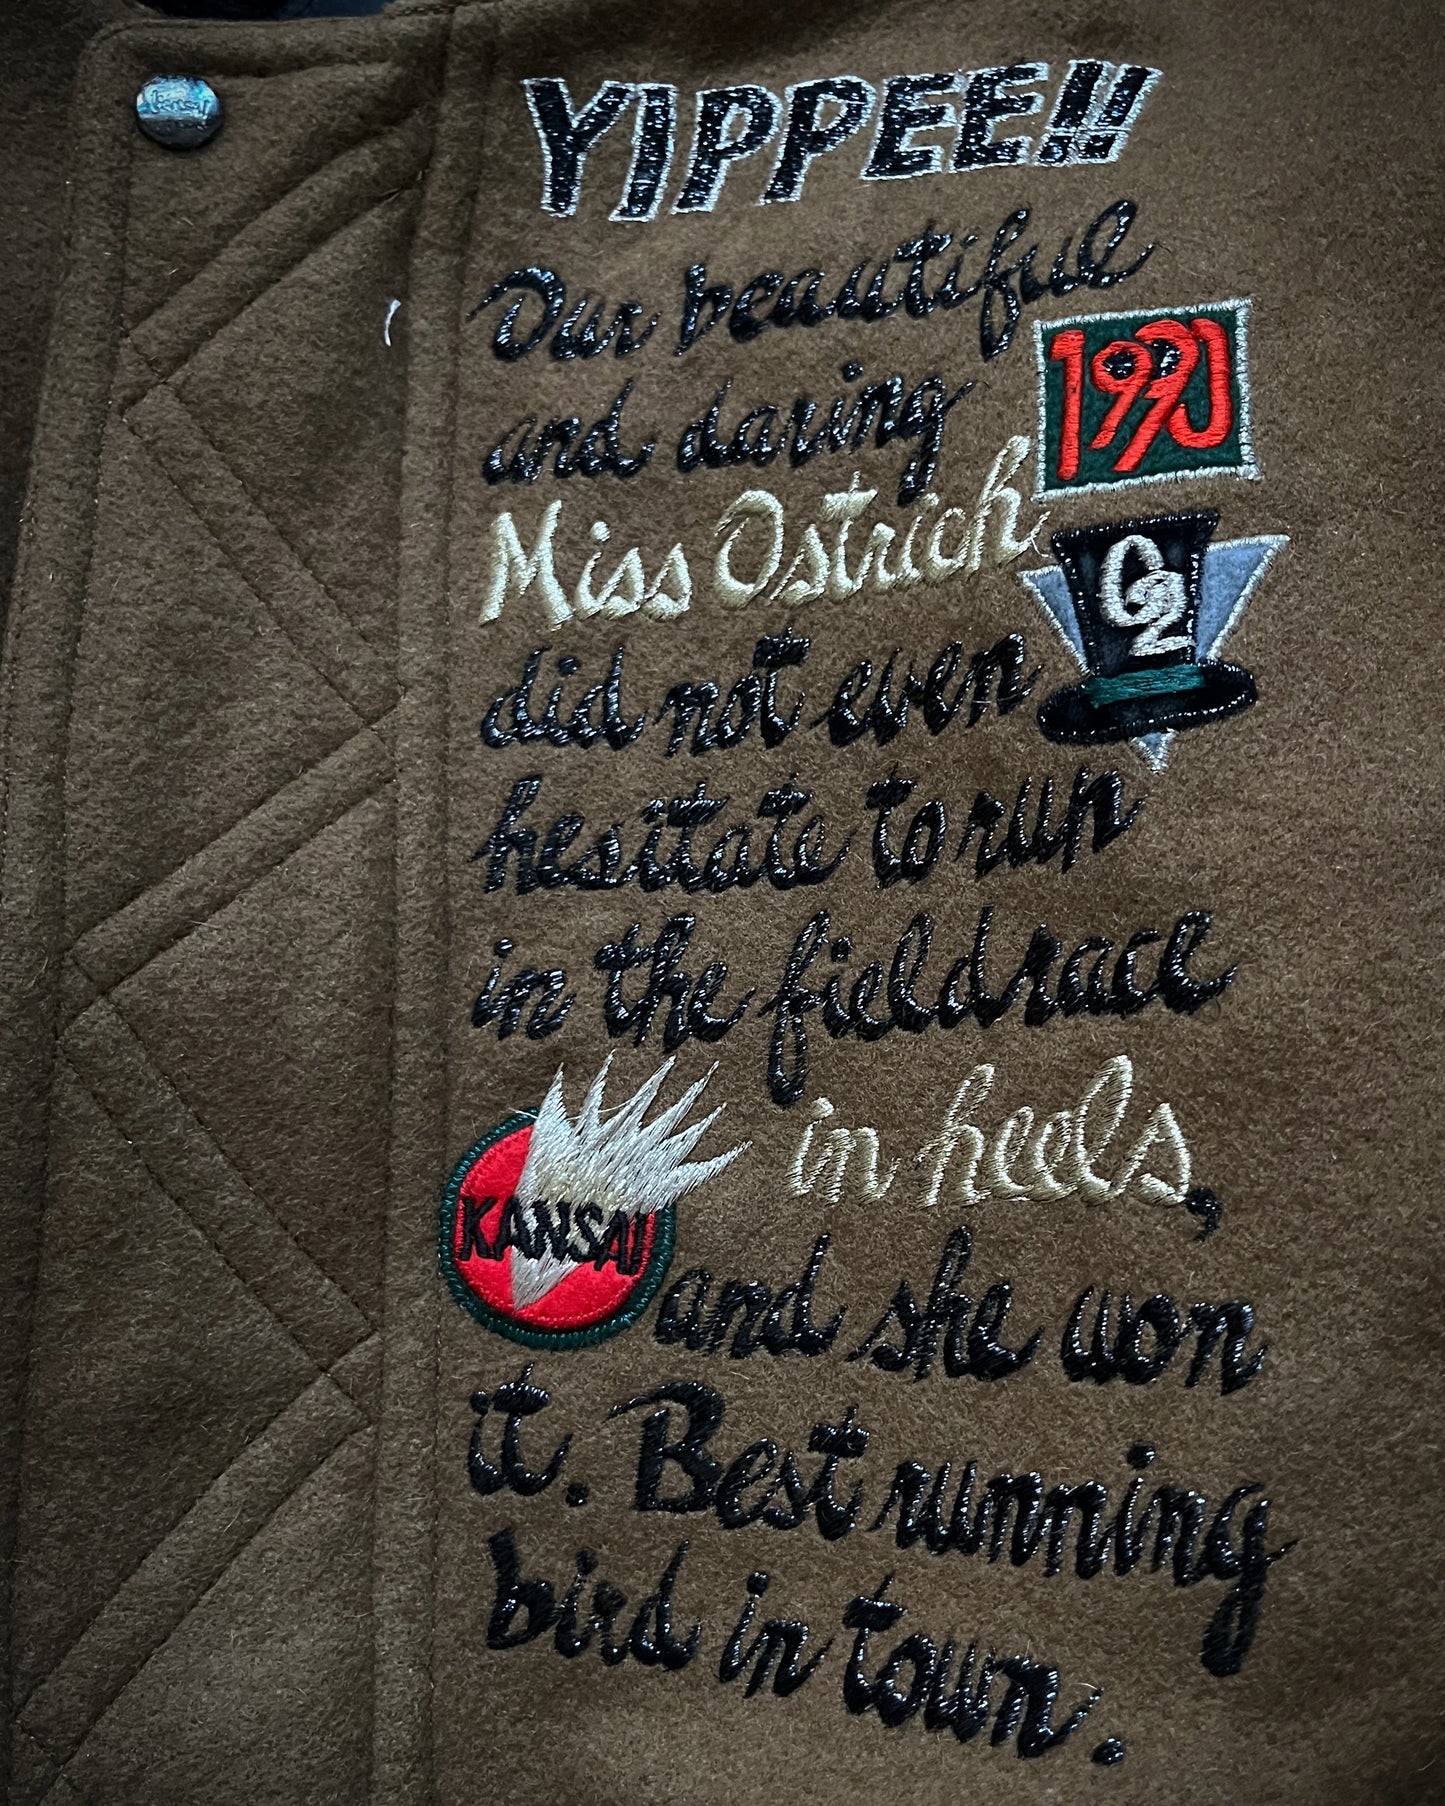 Kansai
YIPPEE!!
Our beautiful
and daring
1991
Miss Ostrich
did not even
hesitate to run
in the field race
in heels,
KANSAI
and she won
it. Best running
bird in town.